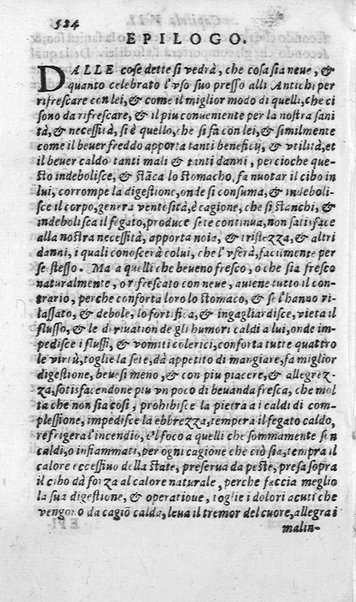 524
EPILOGO.
DALLE cose dette si vedrà, che cosa sia neue, &
quanto celebrato l'vso suo presso alli Antichi per
rifrescare con lei, & come il miglior modo di quelli, che ci
sono da rifrescare, & il piu conueniente per la nostra sani
tà, & necessità, si è quello, che si fà con lei, & similmente
come il beuer freddo apporta tanti beneficij, & vtilità, et
il beuer caldo tanti mali & tanti danni, percioche que
sto indebolisce, & stāca lo stomacho, fa nuotar il cibo in
lui, corrompe la digestione, onde si consuma, & indeboli-
sce il corpo, genera ventosità, è cagione, che si stanchi, &
indebolisca il fegato, produce sete continua, non satisface
alla nostra necessità, apporta noia, & tristezza, & altri
danni, i quali conoscerà colui, che l'vserà, facilmente per
se stesso. Ma a quelli che beueno fresco, o che sia fresco
naturalmente, o rifrescato con neue, auiene tutto il con-
trario, perche conforta loro lo stomaco, & se l'hanno ri-
lassato, & debole, lo fortifica, & ingagliardisce, vieta il
flusso, & le deriuation de gli humori caldi a lui, onde im-
pedisce i flussi, & vomiti colerici, conforta tutte quattro
le virtù, toglie la sete, dà appetito di mangiare, fa miglior
digestione, beuesi meno, & con piu piacere, & allegrez-
za, sotisfacendone piu vn poco di beuanda fresca, che mol
ta che non sia così, prohibisce la pietra a i caldi di com-
plessione, impedisce la ebbrezza, tempera il fegato caldo,
refrigera l'incendio, el foco a quelli che sommamente sen
caldi, o infiammati, per ogni cagione che ciò sia, tempra il
calore eccessiuo della state, preserua da peste, presa sopra
il cibo dà forza al calore naturale, perche faccia meglio
la sua digestione, & operatione, toglie i dolori acuti che
vengono da cagiō calda, leua il tremor del cuore, allegra i
malin-